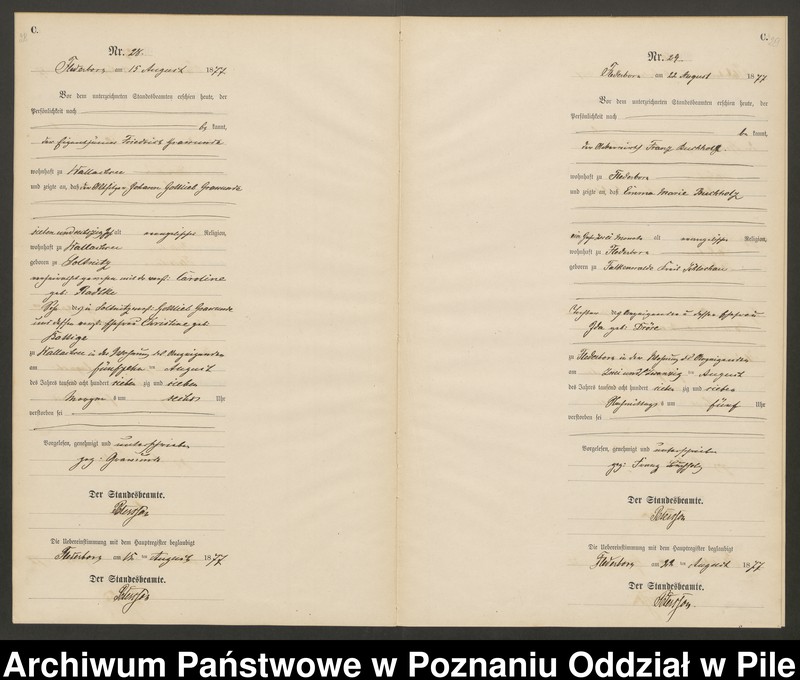 C.
Nr. 28.
Flederborn am 15 August 1877
Vor dem unterzeichneten Standesbeamten erschien heute, der
Persönlichkeit nach
be kannt,
der Eigenthümer Friedrich
wohnhaft zu Wallachsee
und zeigte an, daß der Altsitzer Johann Gottlieb
alt evangelischer Religion,
wohnhaft zu Wallachsee
geboren zu
verheirathet gewesen mit der verst: Caroline
geb: Radtke
Gottlieb
und dessen Ehefrau Christine geb:
zu Wallachsee in der Wohnung des Anzeigenden
am fünfzehn ten August
des Jahres tausend acht hundert sieben zig und sieben
Morgens um sechs Uhr
verstorben sei
Vorgelesen, genehmigt und unterschrieben
gez:
Der Standesbeamte.
Die Uebereinstimmung mit dem Hauptregister beglaubigt
Flederborn am 15 ten August 1877
Der Standesbeamte.
C.
Nr. 29.
Flederborn am 22 August 1877
Vor dem unterzeichneten Standesbeamten erschien heute, der
Persönlichkeit nach
be kannt,
der Franz Buchholz
wohnhaft zu Flederborn
und zeigte an, daß Emma Marie Buchholz
alt evangelischer Religion,
wohnhaft zu Flederborn
geboren zu Falkenwalde Kreis
Tochter des Anzeigenden u dessen Ehefrau
Ida geb:
zu Flederborn in der Wohnung des Anzeigenden
am zwei und zwanzig ten August
des Jahres tausend acht hundert sieben zig und sieben
Nachmittags um fünf Uhr
verstorben sei
Vorgelesen, genehmigt und unterschrieben
gez: Franz Buchholz
Der Standesbeamte.
Die Uebereinstimmung mit dem Hauptregister beglaubigt
Flederborn am 22 ten August 1877
Der Standesbeamte.
Archiwum Państwowe w Poznaniu Oddział w Pile